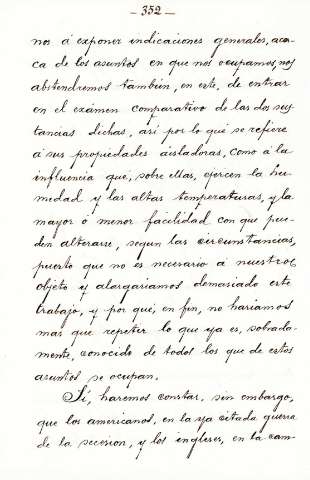 - 352 -
nos á exponer indicaciones generales, acer-
ca de los asuntos en que nos ocupamos, nos
abstendremos tambien, en este, de entrar
en el exámen comparativo de las dos sus-
tancias dichas, asi por lo que se refiere
á sus propiedades aisladoras, como á la
influencia que, sobre ellas, ejercen la hu-
medad y las altas temperaturas, y la
mayor ó menor facilidad con que pue-
den alterarse, segun las circunstancias,
puesto que no es necesario á nuestro
objeto y alargariamos demasiado este
trabajo, y por que, en fin, no hariamos
mas que repetir lo que ya es, sobrada-
mente, conocido de todos los que de estos
asuntos se ocupan.
Sí, haremos constar, sin embargo,
que los americanos, en la ya citada guerra
de la secesion, y los ingleses, en la cam-